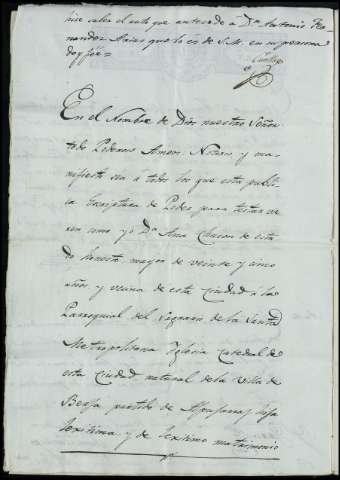 hice saber el auto que antecede a Dn Antonio Fer
nandez Arias que lo es de S.M. en su persona
doy fée=
En el Nombre de Dios nuestro Señor
todo Poderoso Amen. Notorio y ma-
nifiesto sea a todos los que esta publi
ca Escriptura de Poder para testar vie
ren como yó Da Ana Chacon de esta
do honesto mayor de veinte y cinco
años y vecina de esta Ciudad á la
Parroquial del Sagrario de la Santa
Metropolitana Iglesia Catedral de
esta Ciudad natural de la Villa de
Berja partido de Alpujarras hija
lexitima y de lexitimo matrimonio